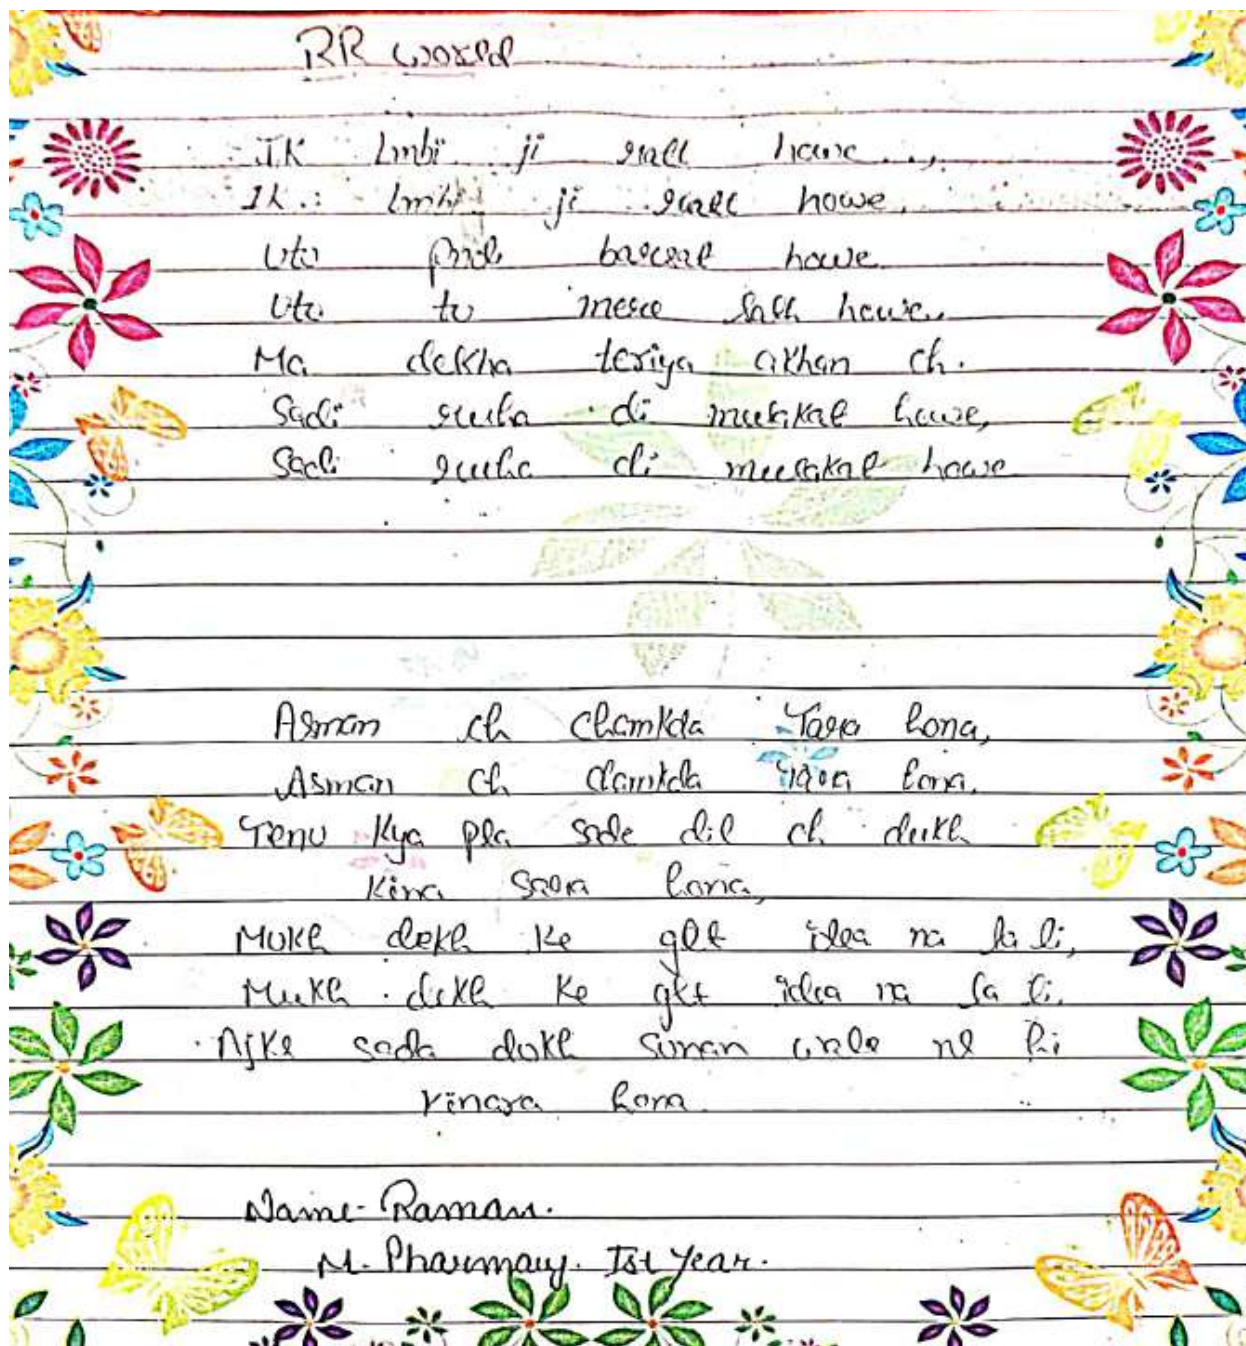 RR world
IK Lmbi ji raat howe..,
Ik Lmbi ji raat howe,
Uto barsat howe
Uto tu mere sath howe,
Ma dekha teriya akhan ch.
Sadi ruha di mulakat howe,
Sadi ruha di mulakat howe
Asman ch chamkda Tara hona,
Asman ch chamkda tara hona,
Tenu kya pta sade dil ch dukh
kina sara hona,
Mukh dekh ke glt idea na la li,
Mukh dekh ke glt idea na la li,
Ajke sada dukh sunan wale ne hi
kinara hona.
Name- Raman.
M. Pharmacy. Ist year.